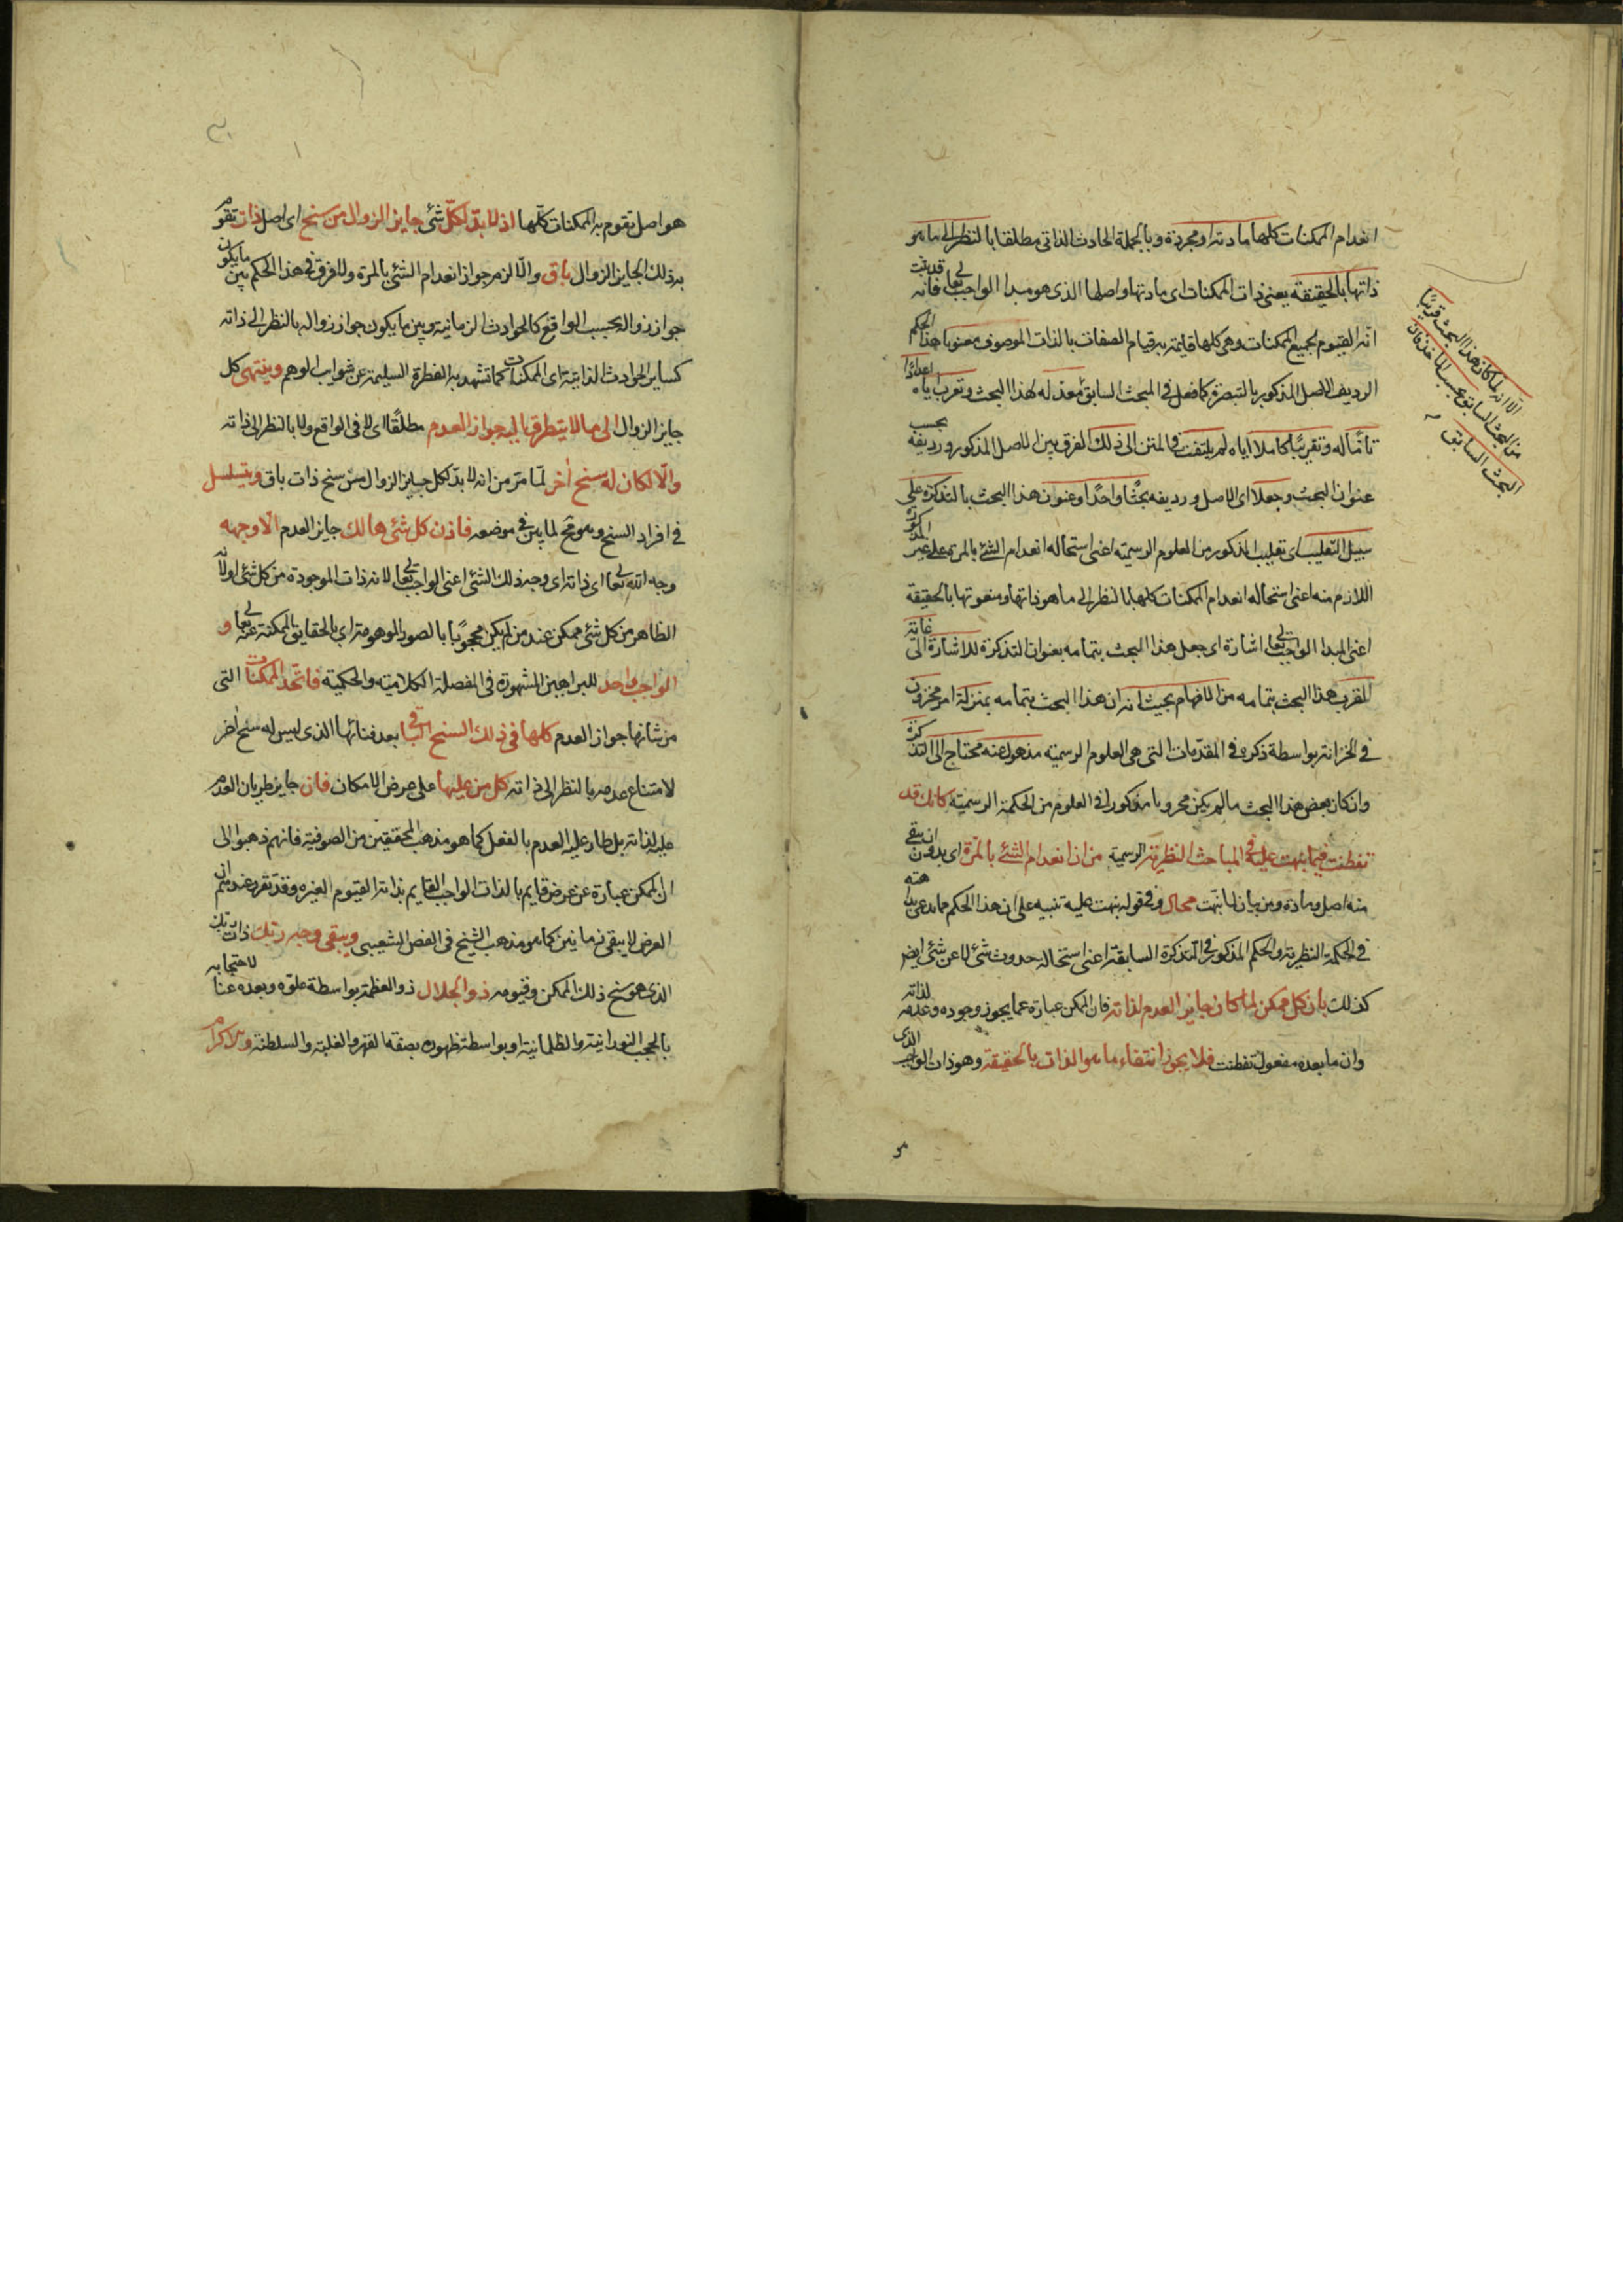 انعدام الممكنات كلها مادته او مجردة وبالجملة الحادث الذاتى مطلقا بالنظر الى ما هو
ذاتها بالحقيقة يعنى ذات الممكنات اى مادتها واصلها الذى هو مبدا الواجب تعالى فانه قد ثبت
انه القيوم لجميع الممكنات وهى كلها قايمة به قيام الصفات بالذات الموصوف معنونا هذا الحكم
الرديف للاصل المذكور بالتبصرة كما فعل فى المبحث السابق معدّ له لهذا البحث وتعرب اياه اعدادًا
تامًا له وتقريبًا كاملا اياه لم يلتفت فى المتن الى ذلك الفرق بين الاصل المذكور ورديفه بحسب
عنوان البحث وجعلا اى الاصل ورديفه بحثًا واحدًا وعنون هذا البحث بالتذكرة على
سبيل التغليب اى تغليب المذكور من العلوم الرسمية اعنى استحالة انعدام الشئ بالمرة على غير المذكور
اللازم منه اعنى استحالة انعدام الممكنات كلها بالنظر الى ما هو ذاتها ومنعوتها بالحقيقة
اعنى المبدا الواجب تعالى اشارة اى جعل هذا البحث بتمامه بعنوان التذكرة للاشارة الى غاية
القرب هذا البحث بتمامه من الافهام بحيث انه ان هذا البحث بتمامه بمنزلة امر مخزون
فى الخزانة بواسطة ذكره فى المقدمات التى هى العلوم الرسمية مذهول عنه محتاج الى التذكرة
وان كان بعض هذا البحث مالم يكن محررا مذكورا فى العلوم من الحكمة الرسمية كانك قد
تفطنت فيما نبهت عليه فى المباحث النظرية الرسمية من ان انعدام الشئ بالمرة اى بدون ان يبقى
منه اصل ومادة ومن بيان لما نبهت محال وفى قوله نبهت عليه تنبيه على ان هذا الحكم مما يدعى بداهته
فى الحكمة النظرية والحكم المذكور فى التذكرة السابقة اعنى استحالة حدوث شئ لا عن شئ ايضا
كذلك بان كل ممكن لما كان جايز العدم لذاته فان الممكن عبارة عما يجوز وجوده وعدمه لذاته
وان ما بعده مفعول تفطنت فلا يجوز انتفاء ما هو الذات بالحقيقة وهو ذات الواجب الذى
الا انه لما كان هذا البحث قريبًا
من البحث السابق بحسب الماخذ فان
البحث السابق
هو اصل تقوم به الممكنات كلها اذ لا بدّ لكلّ شئ جايز الزوال من سنخ اى اصل ذات تقوم
به ذلك الجايز الزوال باق والا لزم جواز انعدام الشئ بالمرة ولا فرق فى هذا الحكم بين ما يكون
جواز زواله بحسب الواقع كالحوادث الزمانية وبين ما يكون جواز زواله بالنظر الى ذاته
كساير الحوادث الذاتية اى الممكنات كما تشهد به الفطرة السليمة عن شوايب الوهم وينتهى كل
جايز الزوال الى ما لا يتطرق اليه جواز العدم مطلقًا اى لا فى الواقع ولا بالنظر الى ذاته
والا لكان له سنخ اخر لما مر من انه لا بدّ لكل جايز الزوال من سنخ ذات باق ويتسلسل
فى افراد السنخ وهو مح لما بين فى موضعه فاذن كل شئ هالك جايز العدم الا وجهه
وجه الله تعالى اى ذاته اى وجه ذلك الشئ اعنى الواجب تعالى لانه ذات الموجودة من كل شئ او لانه
الظاهر من كل شئ ممكن عند من لم يكن محجوبًا بالصور الموهومة اى بالحقايق الممكنة عنه تعالى و
الواجب واحد للبراهين المشهورة فى المفصلة الكلامية والحكمية فاتّحد الممكنات التى
من شانها جواز العدم كلها فى ذلك السنخ الباقى بعد فنائها الذى ليس له سنخ اخر
لامتناع عدمه بالنظر الى ذاته كل من عليها على عرض الامكان فان جايز طريان العدم
عليه لذاته بل طار عليه العدم بالفعل كما هو مذهب المحققين من الصوفية فانهم ذهبوا الى
ان الممكن عبارة عن عرض قايم بالذات الواجب القايم بذاته القيوم لغيره وقد تقرر عندهم ان
العرض لا يبقى زمانين كما هو مذهب الشيخ فى الفص الشعيبى ويبقى وجه ربّك ذات ربك
الذى هو سنخ ذلك الممكن وقيومه ذو الجلال ذو العظمة بواسطة علوّه وبعده عنا لاحتجابه
بالحجب النورانية والظلمانية او بواسطة ظهوره بصفة القهر والغلبة والسلطنة والاكرام